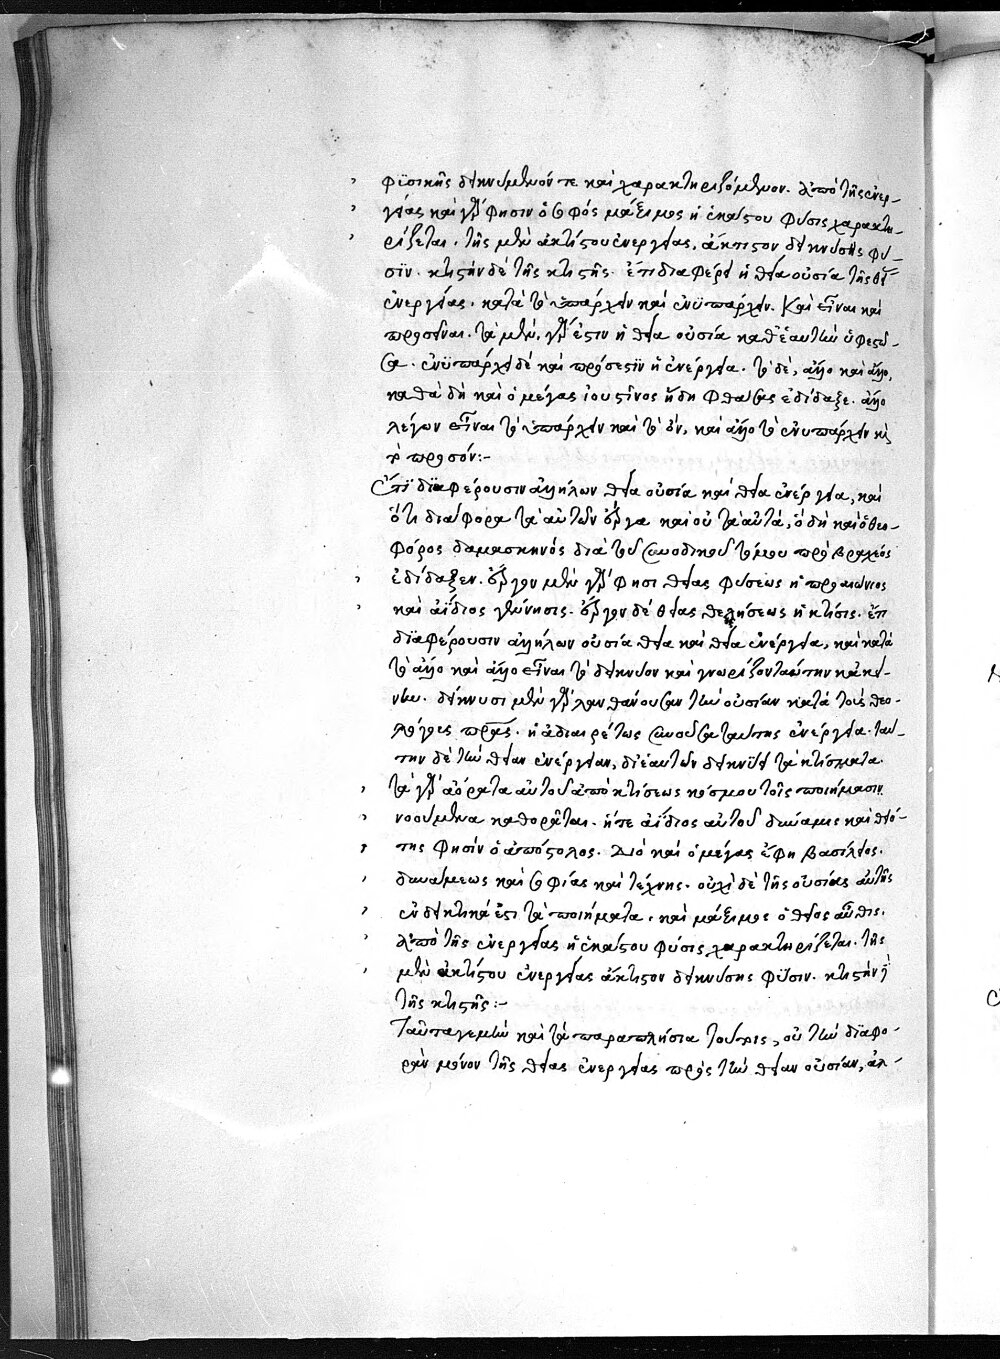 φϊσικῆς δεικνύμενόν τε καὶ χαρακτηριζόμενον. ἀπὸ τῆς ἐνερ-
γείας καὶ γὰρ φησιν ὁ σοφὸς μάξιμος ἡ ἑκάστου φύσις χαρακτη-
ρίζεται. τῆς μὲν ἀκτίστου ἐνεργείας, ἄκτιστον δεικνύσης φύ-
σϊν. κτιστὴν δὲ τῆς κτιστῆς. ἔτι διαφέρει ἡ θεία οὐσία τῆς θείας
ἐνεργείας. κατὰ τὸ ὑπάρχειν καὶ ἐνϋπάρχειν. Καὶ εἶναι καὶ
προσεῖναι. τὰ μὲν, γὰρ ἐστιν ἡ θεία οὐσία καθ' ἑαυτὴν ὑφεστῶ-
σα. ἐνϋπάρχει δὲ καὶ πρόσεστϊν ἡ ἐνέργεια. τὸ δὲ, ἄλλο καὶ ἄλλο,
καθὰ δὴ καὶ ὁ μέγας ἰουστῖνος ἤδη φθάσας ἐδίδαξε. ἄλλο
λέγων εἶναι τὸ ὑπάρχειν καὶ τὸ ὄν, καὶ ἄλλο τὸ ἐνυπάρχειν καὶ
τὸ προσόν:-
Ἔτϊ δϊαφέρουσιν ἀλλήλων θεία οὐσία καὶ θεία ἐνέργεια, καὶ
ὅτι διάφορα τὰ αὐτῶν ἔργα καὶ οὐ ταὐτά, ὁ δὴ καὶ ὁ θεο-
φόρος δαμασκηνὸς διὰ τοῦ συνοδικοῦ τόμου πρὸ βραχέος
ἐδίδαξεν. ἔργον μὲν γὰρ φησι θείας φύσεως ἡ προαιώνιος
καὶ ἀΐδιος γέννησις. ἔργον δὲ θείας θελήσεως ἡ κτίσις. ἔτι
δϊαφέρουσιν ἀλλήλων οὐσία θεία καὶ θεία ἐνέργεια, καὶ κατὰ
τὸ ἄλλο καὶ ἄλλο εἶναι τὸ δεικνύον καὶ γνωρίζον ταύτην κἀκεί-
νην. δείκνυσι μὲν γὰρ λανθάνουσαν τὴν οὐσίαν κατὰ τοὺς θεο-
λόγους πατέρας. ἡ ἀδιαιρέτως συνοῦσα ταύτης ἐνέργεια. ταύ-
την δὲ τὴν θείαν ἐνέργειαν, δι' ἑαυτῶν δείκνϋσι τὰ κτίσματα.
τὰ γὰρ ἀόρατα αὐτοῦ ἀπὸ κτίσεως κόσμου τοῖς ποιήμασιν
νοούμενα καθορᾶται. ἥτε ἀΐδιος αὐτοῦ δύναμις καὶ θειό-
της φησὶν ὁ ἀπόστολος. Διὸ καὶ ὁ μέγας ἔφη βασίλειος.
δυνάμεως καὶ σοφίας καὶ τέχνης. οὐχὶ δὲ τῆς οὐσίας αὐτῆς
ἐνδεικτικά ἐστι τὰ ποιήματα. καὶ μάξιμος ὁ θεῖος αὖθις.
ἀπὸ τῆς ἐνεργείας ἡ ἑκάστου φύσις χαρακτηρίζεται. τῆς
μὲν ἀκτίστου ἐνεργείας ἄκτιστον δεικνύσης φύσιν. κτιστὴν δὲ
τῆς κτιστῆς:-
Ταῦτα γε μὴν καὶ τὰ παραπλήσια τούτοις, οὐ τὴν δϊαφο-
ρὰν μόνον τῆς θείας ἐνεργείας πρὸς τὴν θείαν οὐσίαν, ἀλ-